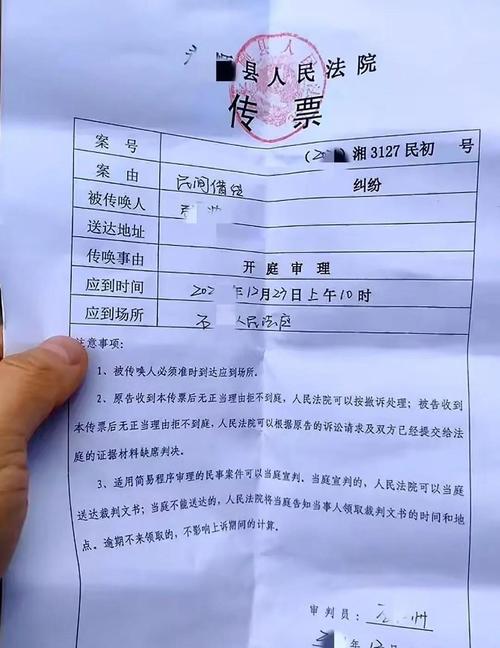 县人民法院
传票
案号 湘3127民初 号
案由 民间借贷 纠纷
被传唤人
送达地址
传唤事由 开庭审理
应到时间 202 年12月27日上午10时
应到场所 人民法庭
注意事项:
1、被传唤人必须准时到达应到场所。
2、原告收到本传票后无正当理由拒不到庭,人民法院可以按撤诉处理;被告收到
本传票后无正当理由拒不到庭,人民法院可以根据原告的诉讼请求及双方已经提交给法
庭的证据材料缺席判决。
3、适用简易程序审理的民事案件可以当庭宣判。当庭宣判的,人民法院可以当庭
送达裁判文书;当庭不能送达的,人民法院将当庭告知当事人领取裁判文书的时间和地
点。逾期不来领取的,不影响上诉期间的计算。
审判员: 州
年12月